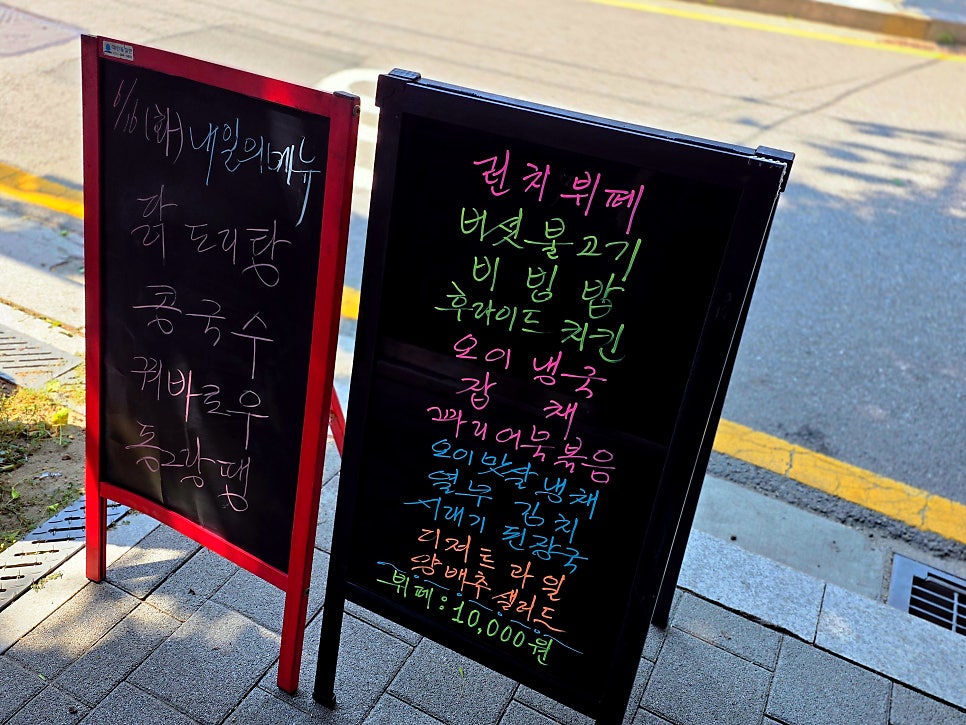 6/16 (화) 내일의 메뉴
닭 도리탕
콩국수
꿔바로우
동그랑땡
런치뷔페
버섯불고기
비빔밥
후라이드 치킨
오이냉국
잡채
꽈리어묵볶음
오이맛살냉채
열무김치
시래기 된장국
디저트 과일
양배추샐러드
뷔페:10,000원